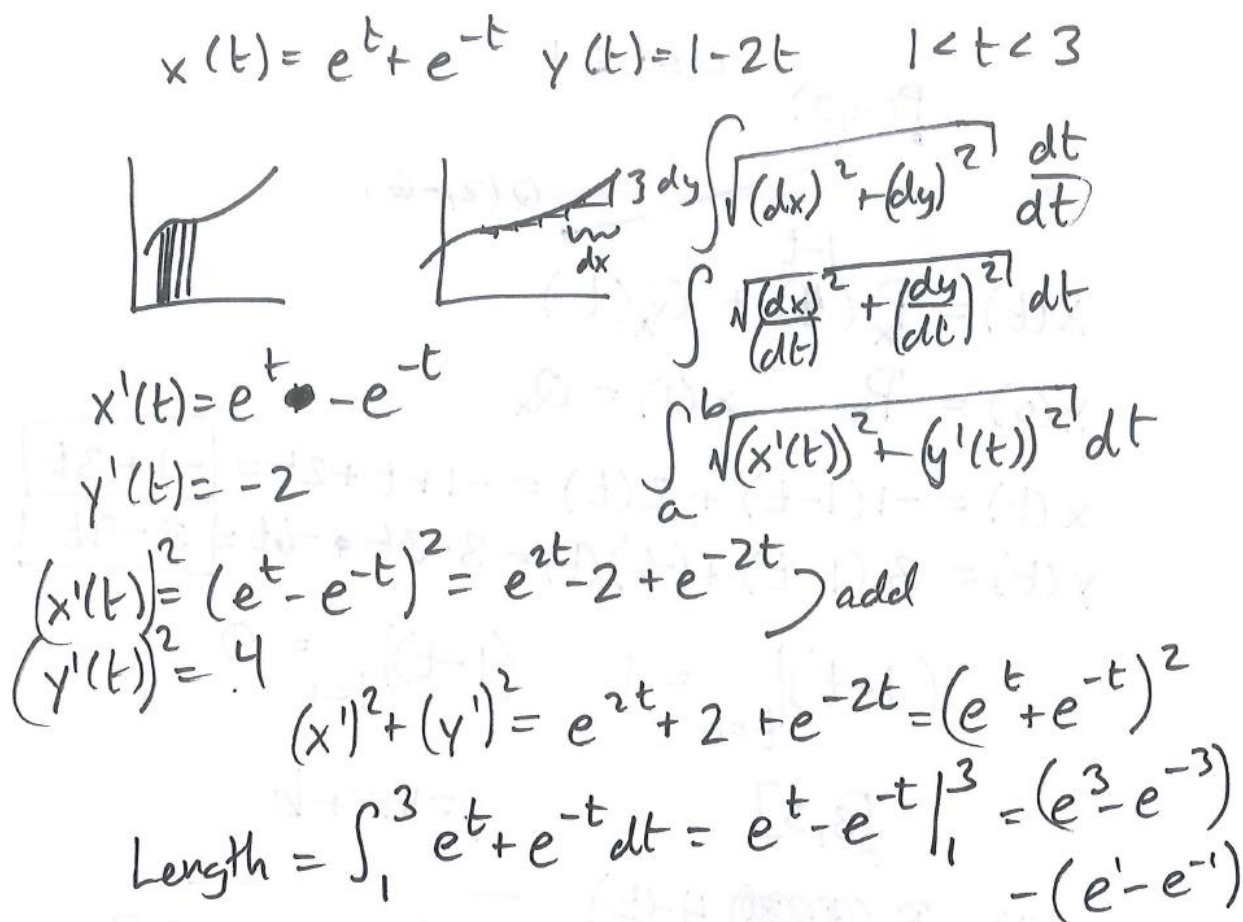 x(t) = e^t + e^-t y(t) = 1-2t 1 < t < 3
} dy
dx
∫ √((dx)^2 + (dy)^2) dt/dt
∫ √((dx/dt)^2 + (dy/dt)^2) dt
∫_a^b √((x'(t))^2 + (y'(t))^2) dt
x'(t) = e^t - e^-t
y'(t) = -2
(x'(t))^2 = (e^t - e^-t)^2 = e^2t - 2 + e^-2t ) add
(y'(t))^2 = 4
(x')^2 + (y')^2 = e^2t + 2 + e^-2t = (e^t + e^-t)^2
Length = ∫_1^3 e^t + e^-t dt = e^t - e^-t |_1^3 = (e^3 - e^-3)
- (e^1 - e^-1)